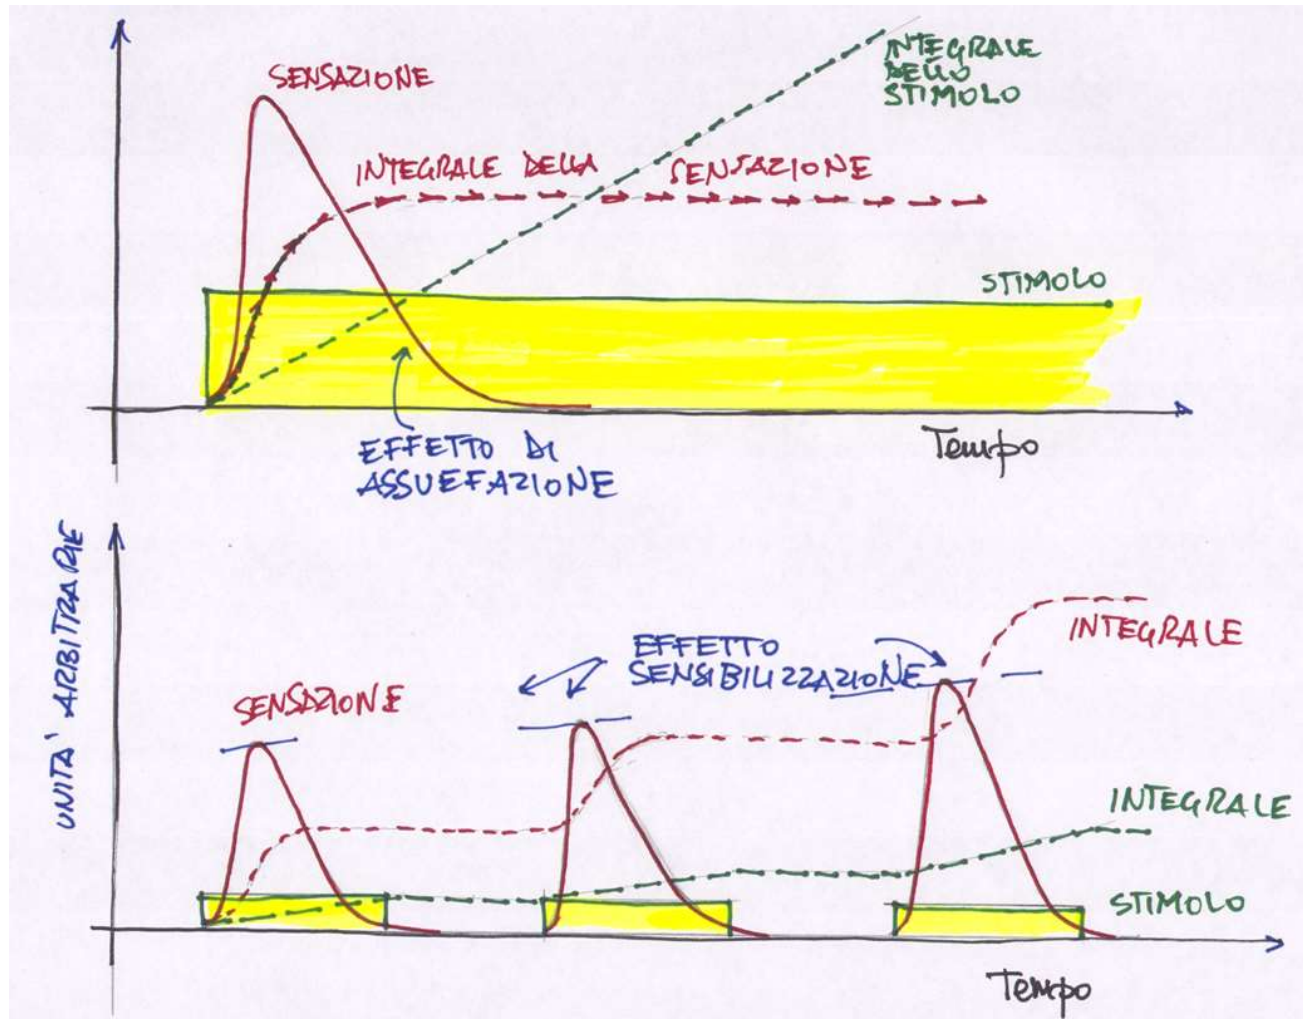 SENSAZIONE
INTEGRALE
DELLO
STIMOLO
INTEGRALE DELLA SENSAZIONE
STIMOLO
EFFETTO DI
ASSUEFAZIONE
Tempo
UNITA' ARBITRARIE
EFFETTO
SENSIBILIZZAZIONE
INTEGRALE
SENSAZIONE
INTEGRALE
STIMOLO
Tempo